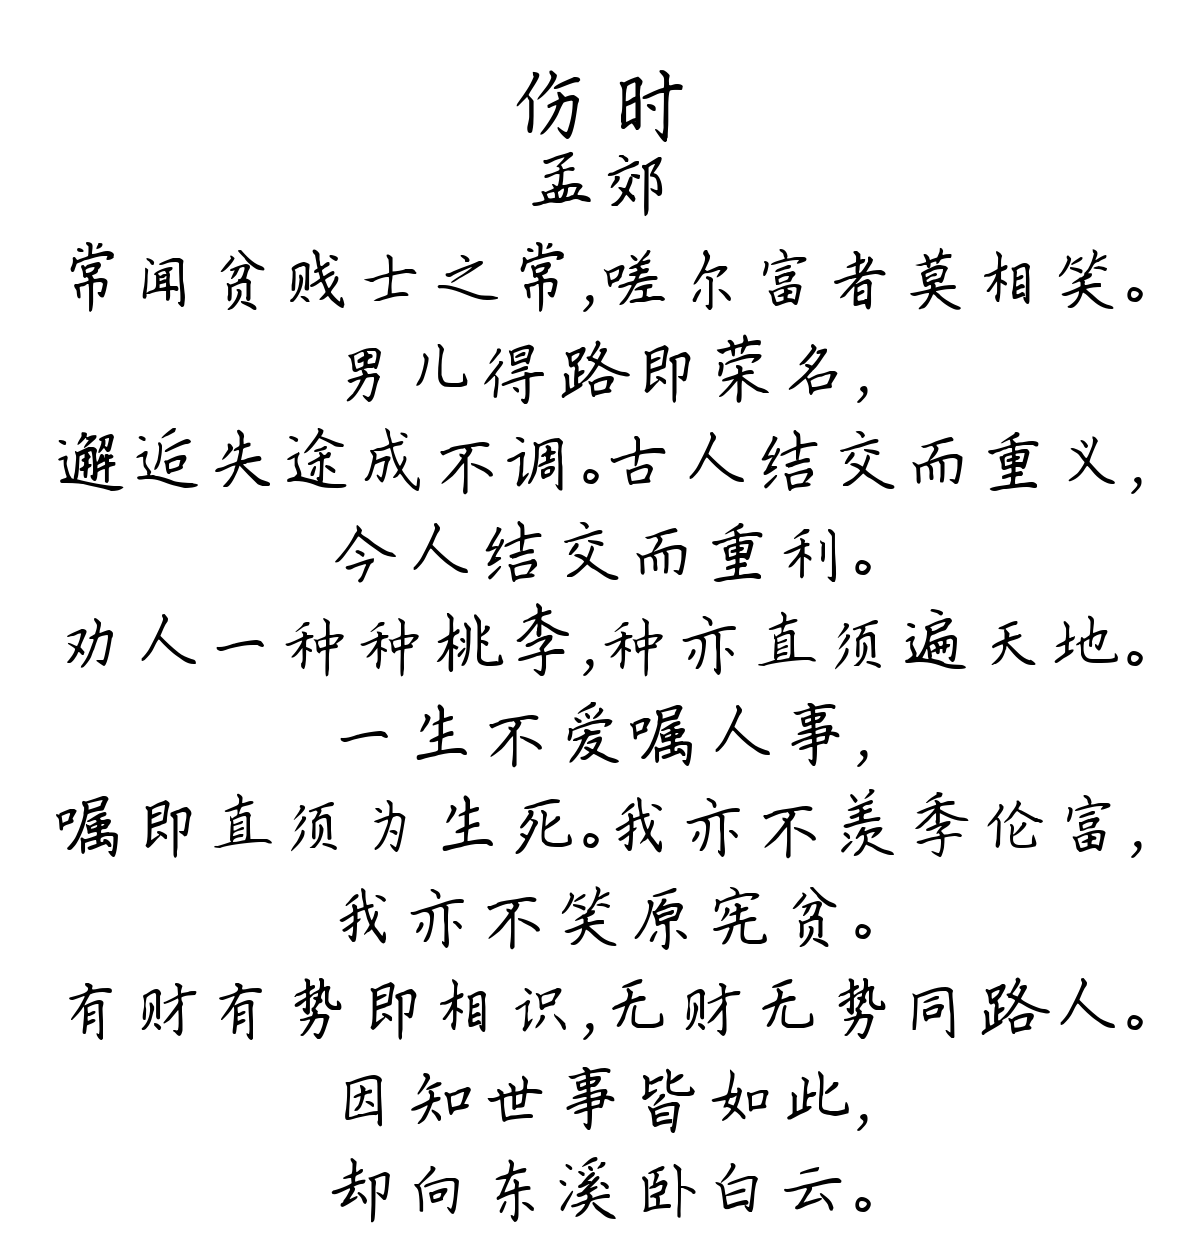 伤时
孟郊
常闻贫贱士之常,嗟尔富者莫相笑。
男儿得路即荣名,
邂逅失途成不调。古人结交而重义,
今人结交而重利。
劝人一种种桃李,种亦直须遍天地。
一生不爱嘱人事,
嘱即直须为生死。我亦不羡季伦富,
我亦不笑原宪贫。
有财有势即相识,无财无势同路人。
因知世事皆如此,
却向东溪卧白云。